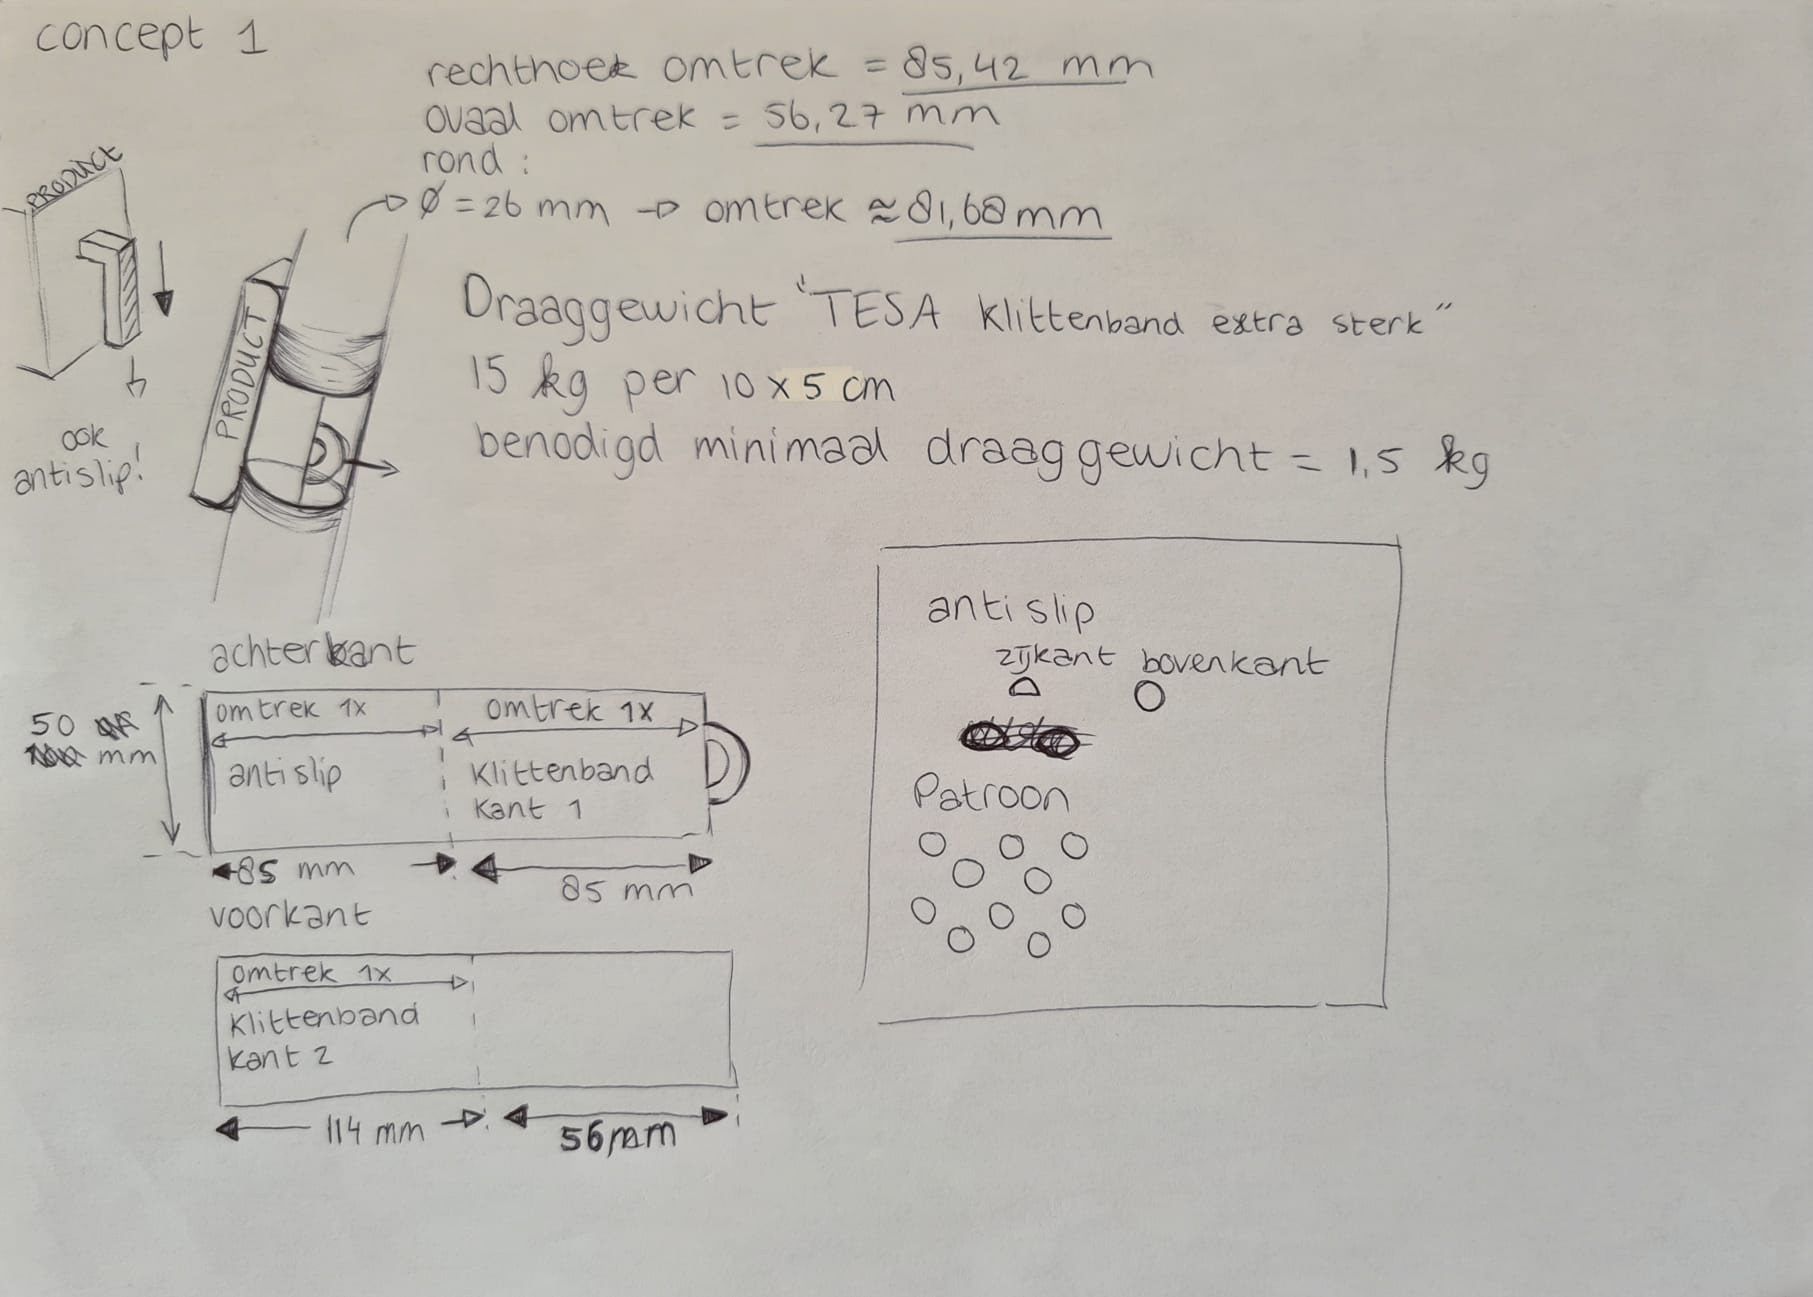 concept 1
rechthoek omtrek = 85,42 mm
ovaal omtrek = 56,27 mm
rond :
Ø = 26 mm → omtrek ≈ 81,68 mm
PRODUCT
PRODUCT
ook
antislip!
Draaggewicht "TESA klittenband extra sterk"
15 kg per 10 x 5 cm
benodigd minimaal draaggewicht = 1,5 kg
achterkant
50
mm
omtrek 1x
omtrek 1x
antislip
Klittenband
Kant 1
85 mm
85 mm
voorkant
omtrek 1x
Klittenband
Kant 2
114 mm
56 mm
antislip
zijkant bovenkant
Patroon